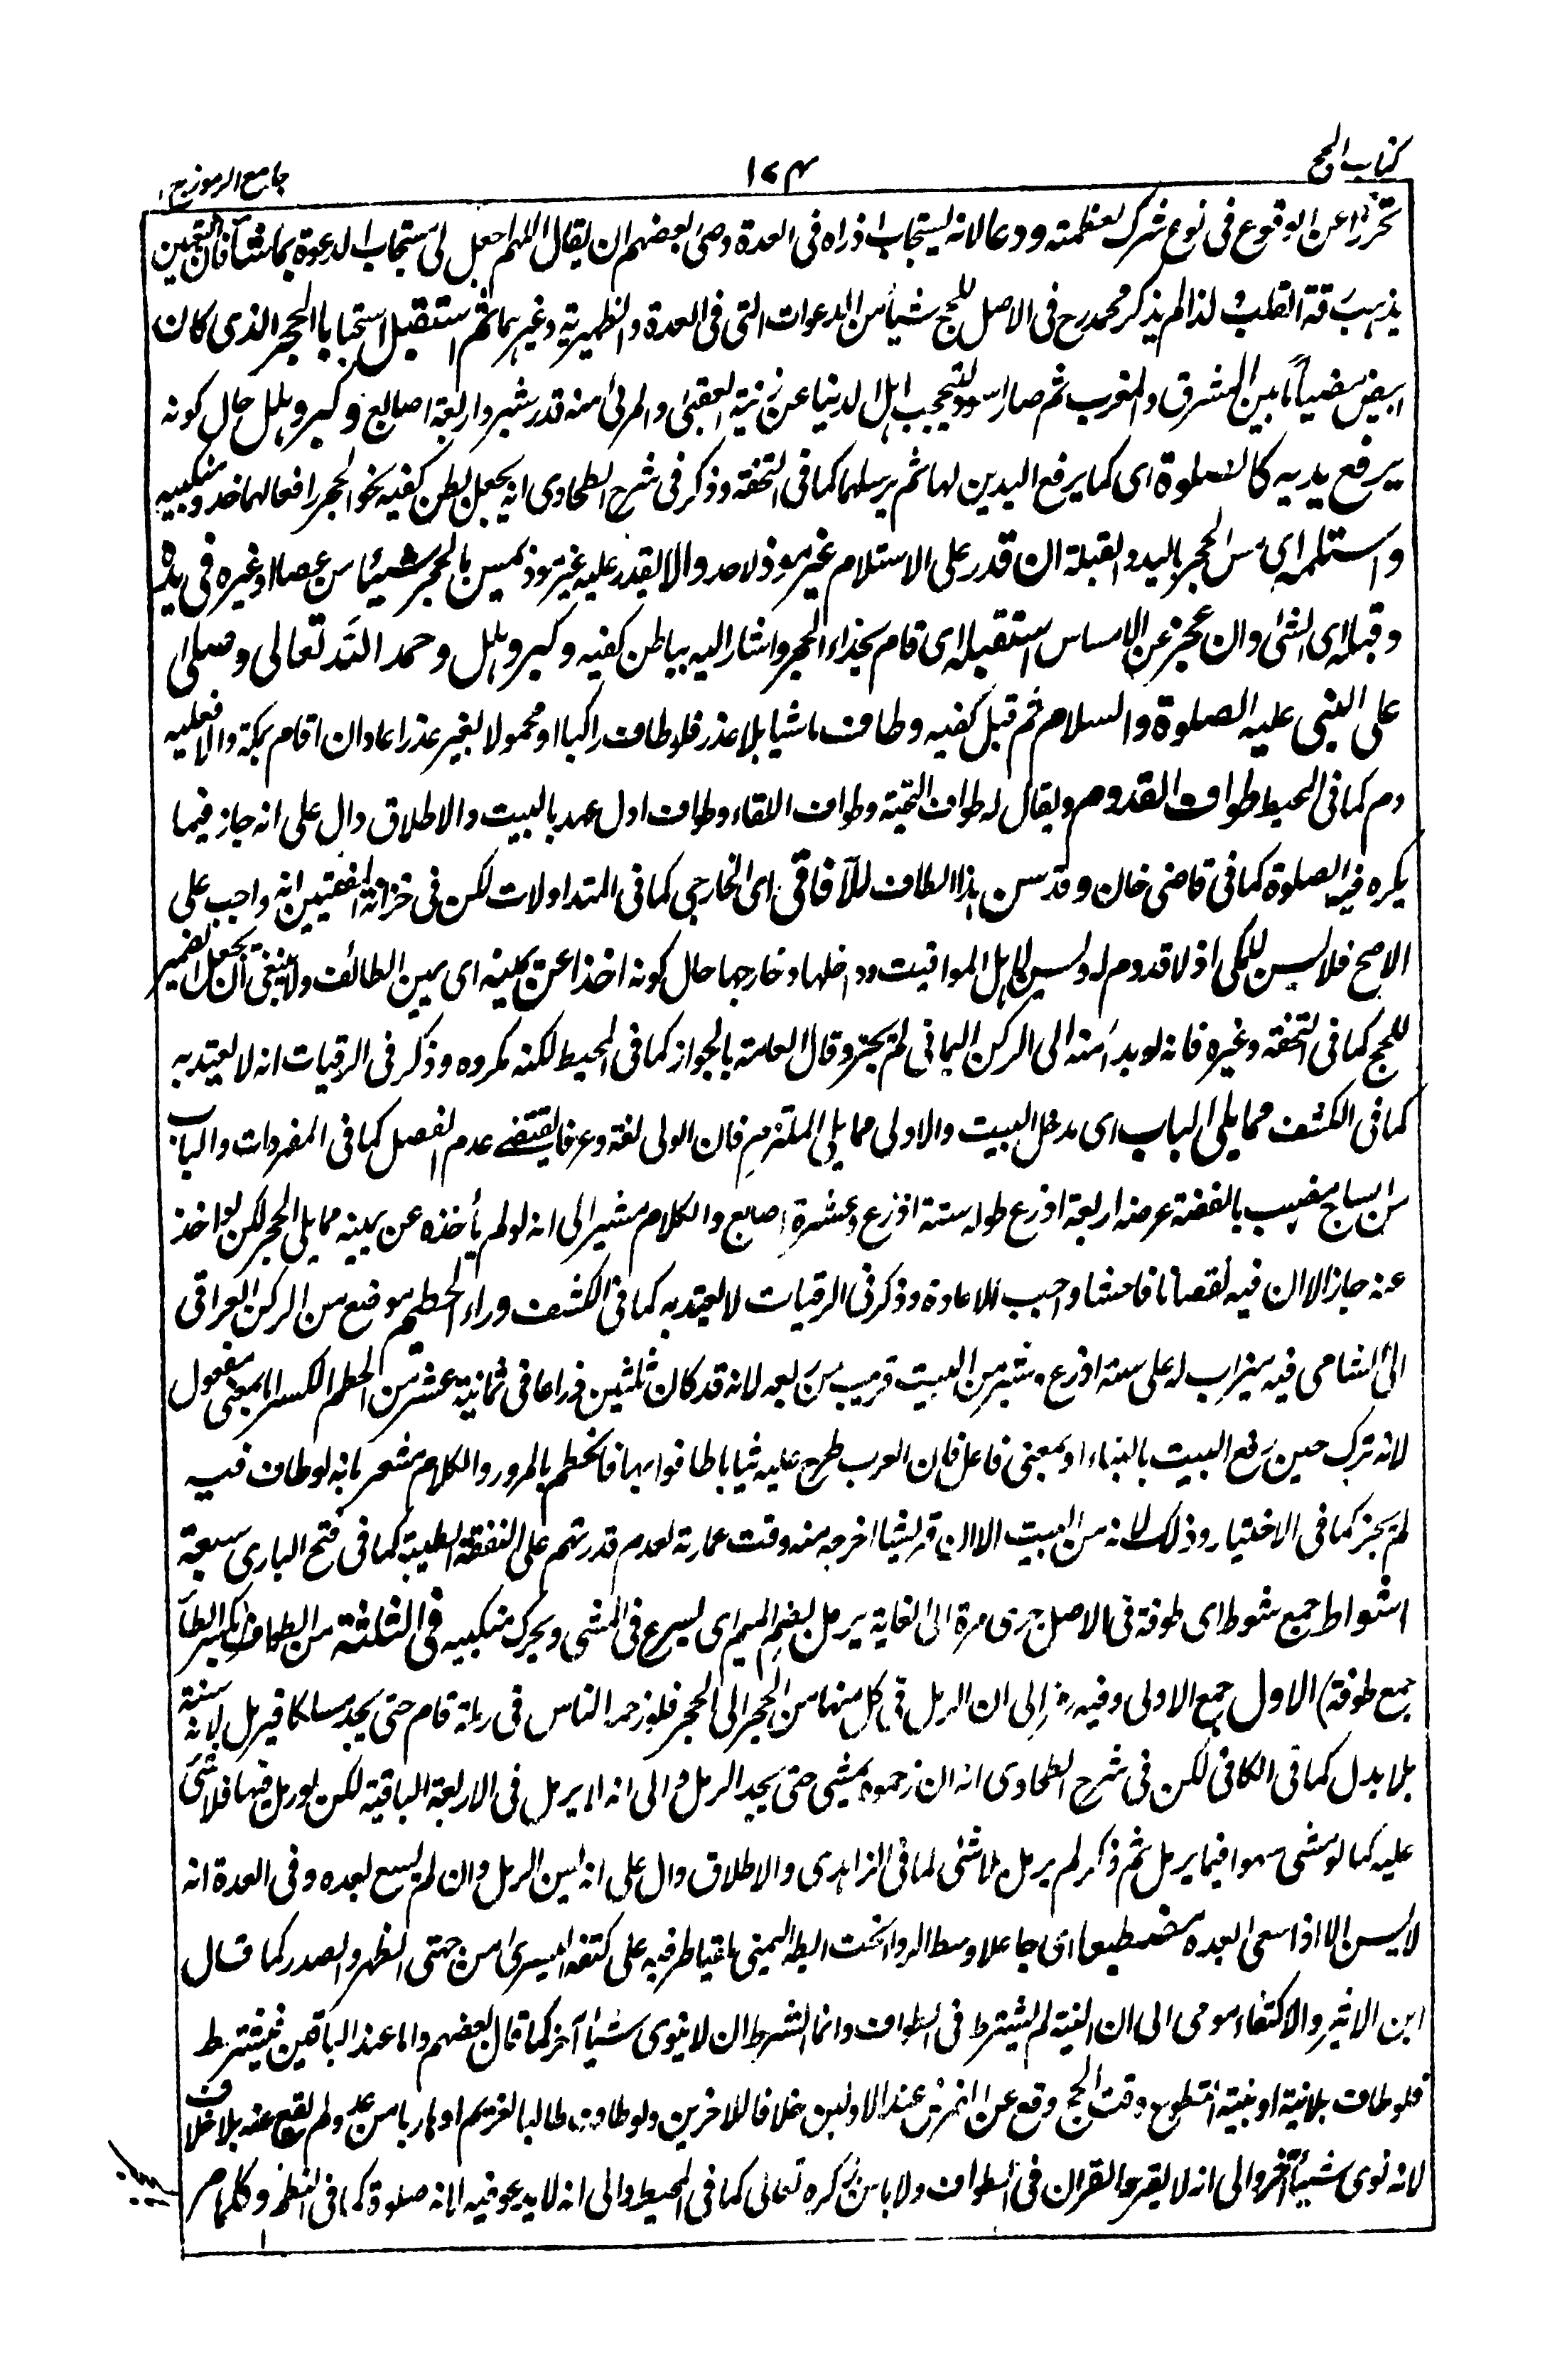 كتاب الحج
١٧٤
جامع الرموز ج ١
تحرزا عن الوقوع في نوع شرك لعظمته ودعا لانه يستجاب اذ راه في العدة وصى بعضهم ان يقال اللهم اجعل لي مستجاب الدعوة بما شئنا فان التعيين
يذهب رقة القلب لذا لم يذكر محمد رح في الاصل للحج شيأ من الدعوات التي في العدة والظهيرية وغيرهما ثم استقبل استحبابا الحجر الذي كان
ابيض مضيأ ما بين المشرق والمغرب ثم صار اسود لتحجب اهل الدنيا عن زينة العقبى والمرئ منه قدر شبر واربعة اصابع وكبر وهلل حال كونه
يرفع يديه كالصلوة اى كما يرفع اليدين لها ثم يرسلهما كما في التحفة وذكر في شرح الطحاوى انه يجعل بطن كفيه نحو الحجر رافعا لهما حذو منكبيه
واستلمه اى مس الحجر باليد والقبلة ان قدر على الاستلام غير موذ لاحد والا لقدر عليه غير موذ يمس بالحجر شيئا من عصا او غيره في يده
وقبله اى الشئ وان عجز عن الامساس استقبله اى قام بحذاء الحجر واشار اليه بباطن كفيه وكبر وهلل وحمد الله تعالى وصلى
على النبي عليه الصلوة والسلام ثم قبل كفيه وطاف ماشيا بلا عذر فلو طاف راكبا او محمولا بغير عذر اعاد ان اقام بمكة والا فعليه
دم كما في المحيط طواف القدوم ويقال له طواف التحية وطواف اللقاء وطواف اول عهد بالبيت والاطلاق دال على انه جاز فيما
يكره فيه الصلوة كما في قاضي خان وقد سن هذا الطاف للآفاقى اى الخارجى كما في المتداولات لكن في خزانة المفتيين انه واجب على
الاصح فلا يسن للمكى اذ لا قدوم له وليس لاهل المواقيت وداخلها وخارجها حال كونه اخذا عن يمينه اى يمين الطائف ولا ينبغى ان يجعل الضمير
للحج كما في التحفة وغيره فانه لو بدأ منه الى الركن اليمانى لم يجز وقال العامة بالجواز كما في المحيط لكنه مكروه وذكر في الرقيات انه لا يعتد به
كما في الكشف مما يلي الباب اى مدخل البيت والاولى مما يلي الملتزم فان الولى لغة وعرفا يقتضے عدم الفصل كما في المفردات والباب
من الساج مضبب بالفضة عرضه اربعة اذرع طوله ستة اذرع وعشرة اصابع والكلام مشير الى انه لو لم يأخذه عن يمينه مما يلي الحجر لكن لو اخذ
عنه جاز الا ان فيه نقصانا فاحشا واجب للاعادة وذكر في الرقيات لا يعتد به كما في الكشف وراء الحطيم موضع من الركن العراقى
الى الشامى فيه ميزاب له على ستة اذرع وشبر من البيت قريب من ربعه لانه قد كان ثلثين ذراعا في ثمانية عشر من الحطم الكسر اما بمعنى مفعول
لانه ترك حين رفع البيت بالبناء او بمعنى فاعل فان العرب طرح عليه ثيابا طافوا بها فانحطم بالمرور والكلام مشعر بانه لو طاف فيه
لم يجز كما في الاختيار وذلك لانه من البيت الا ان قريشا اخرجه منه وقت عمارته لعدم قدرتهم على النفقة الطيبة كما في فتح البارى سبعة
اشواط جمع شوط اى طوفة في الاصل جرى مرة الى الغاية يرمل بضم الميم اى يسرع في المشى ويحرك منكبيه في الثلثة من الطواف بكسر الطآ
جمع طوفة) الاول جمع الاولى وفيه رمز الى ان الرمل في كل منها من الحجر الى الحجر فلو زحمه الناس في رملة قام حتى يجد مسلكا فيرمل لانه سنة
بلا بدل كما في الكافى لكن في شرح الطحاوى انه ان زحموه يمشى حتى يجد الرمل والى انه لا يرمل في الاربعة الباقية لكن لو رمل فيها فلا شئ
عليه كما لو مشى سهوا فيما يرمل ثم ذكر لم يرمل بلا شئ كما في الزاهدى والاطلاق دال على انه يسن الرمل وان لم يسع بعده وفي العدة انه
لا يسن الا اذا سعى بعده مضطبعا اى جاعلا وسط الرداء تحت ابطه اليمنى ملقيا طرفيه على كتفه اليسرى من جهتى الظهر والصدر كما قال
ابن الاثير والاكتفاء مومى الى ان النية لم يشترط في الطواف وانما الشرط ان لا ينوى شيأ آخر كما قال بعضهم واما عند الباقين فيشترط
فلو طاف بلا نية او بنية التطوع وقت الحج وقع عن الفرض عند الاولين خلافا للاخرين ولو طاف طالبا لغريم او هاربا من عدو لم يقع عنه بلا خلاف
لانه نوى شيئا آخر والى انه لا يقرء القرآن في الطواف ولا باس بذكره تعالى كما في المحيط والى انه لا يدعو فيه لانه صلوة كما في النظم وكلما مر